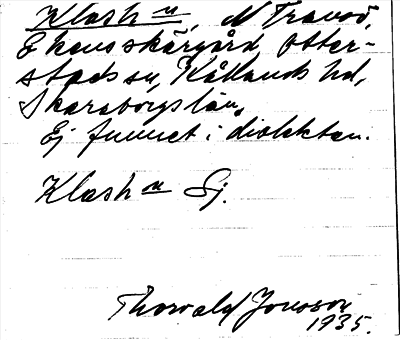 Klash n, N Transö,
Ekens skärgård, Otter-
stads sn, Kållands hd,
Skaraborgs län.
Ej funnet i dialekten.
Klash n Sj.
Thorvald Jonsson
1935.